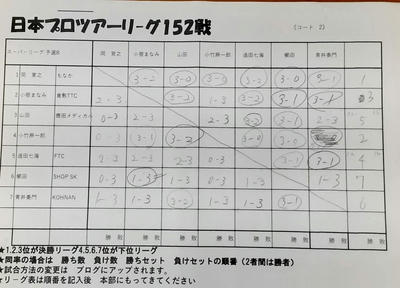 日本プロツアーリーグ152戦
(コート 2)
スーパーリーグ予選B 岡 小宿まなみ 山田 小竹原一郎 迫田七海 植田 青井泰門 勝 敗 順
1 岡 もなか 3-2 3-0 3-0 3-2 3-0 3-1 1
2 小宿まなみ 倉敷TTC 2-3 3-2 1-3 3-2 3-1 3-1 3
3 山田 豊田メディカル 0-3 2-3 2-3 3-2 3-1 2-3 5
4 小竹原一郎 0-3 3-1 3-2 3-0 3-0 2
5 迫田七海 FTC 2-3 2-3 2-3 0-3 3-1 3-1 4
6 植田 SHOP SK 0-3 1-3 1-3 0-3 1-3 7
7 青井泰門 KOHNAN 1-3 1-3 3-2 1-3 3-1 6
勝 敗 勝 敗 勝 敗 勝 敗 勝 敗 勝 敗 勝 敗
★1.2.3位が決勝リーグ4.5.6.7位が下位リーグ
★同率の場合は 勝ち数 負け数 勝ちセット 負けセットの順番 (2者間は勝者)
★試合方法の変更は ブログにアップされます。
★リーグ表は順番を記入後 本部にもってきてください